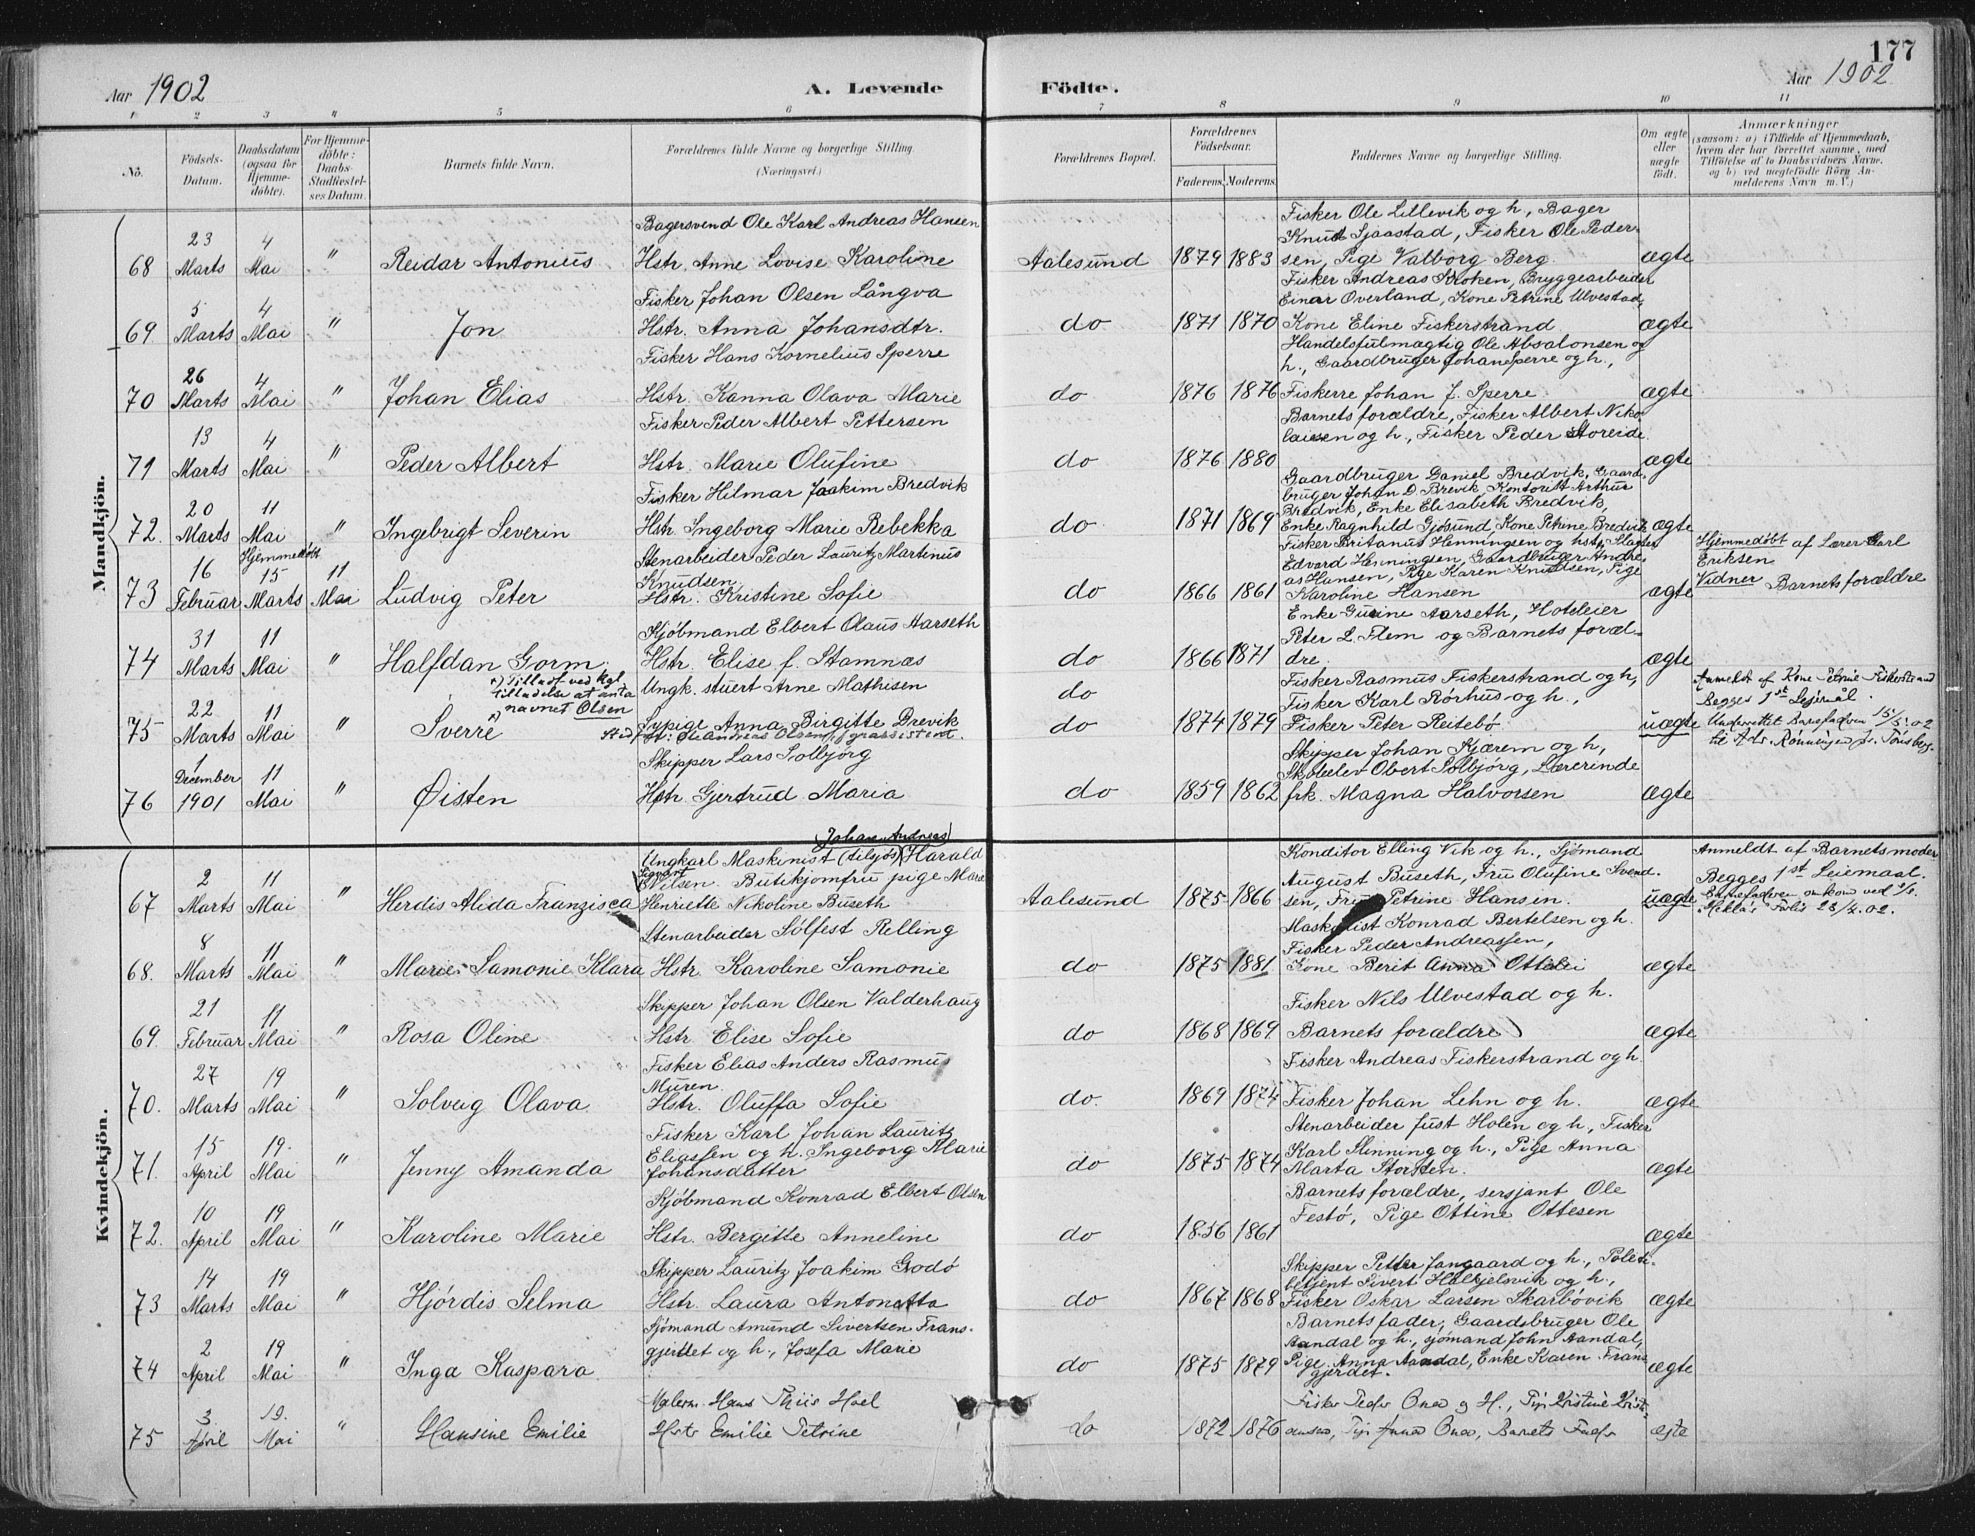 177
Aar 1902 A. Levende Födte. Aar 1902
1 2 3 4 5 6 7 8 9 10 11
No. Födsels-Datum. Daabsdatum (ogsaa for Hjemmedöbte). For Hjemmedöbte: Daabs-Stadfæstelses Datum. Barnets fulde Navn. Forældrenes fulde Navne og borgerlige Stilling. (Næringsvei.) Forældrenes Bopæl. Forældrenes Födselsaar. Faderens. Moderens. Faddernes Navne og borgerlige Stilling. Om ægte eller uægte födt. Anmærkninger (saasom: a) i Tilfælde af Hjemmedaab, hvem der har forrettet samme, med Tilföielse af to Daabsvidners Navne. og b) ved uægtefödte Börn Anmelderens Navn m. V.)
Mandkjön.
68 23 Marts 4 Mai " Reidar Antonius Bagersvend Ole Karl Andreas Hansen
Hstr. Anne Lovise Karoline Aalesund 1879 1883 Fisker Ole Lillevik og h, Bager
Knut Sjaastad, Fisker Ole Peder-
sen, Pige Valborg Berg. ægte
69 5 Marts 4 Mai " Jon Fisker Johan Olsen Långva
Hstr. Anna Johansdtr. do 1871 1870 Fisker Andreas Kroken, Bryggearbeider
Einar Overland, Kone Petrine Ulvestad,
Kone Eline Fiskerstrand ægte
70 26 Marts 4 Mai " Johan Elias Fisker Hans Kornelius Sperre
Hstr. Kanna Olava Marie do 1876 1876 Handelsfulmægtig Ole Absalonsen og
h., Gaardbruger Johan Sperre og h,
Fiskerre Johan J. Sperre ægte
71 13 Marts 4 Mai " Peder Albert Fisker Peder Albert Pettersen
Hstr. Marie Olufine do 1876 1880 Barnets forældre, Fisker Albert Niko-
laisen og h., Fisker Peder Storeide ægte
72. 20 Marts 11 Mai " Ingebrigt Severin Fisker Hilmar Joakim Bredvik
Hstr Ingeborg Marie Rebekka do 1871 1869 Gaardbruger Daniel Bredvik, Gaard-
bruger Johan D. Brevik Kontorist Arthur
Bredvik, Enke Elisabeth Bredvik,
Enke Ragnhild Gjøsund, Kone Petrine Bredvik ægte
73 16 Februar Hjemmedöbt 15 Marts 11 Mai Ludvig Peter Stenarbeider Peder Lauritz Martinus
Knudsen
Hstr. Kristine Sofie do 1866 1861 Fisker Britanus Henningsen og hstr, Slagter
Edvard Henningsen, Gaardbruger Andre-
as Hansen, Pige Karen Knudsen, Pige
Karoline Hansen ægte Hjemmedöbt af Lærer Carl
Eriksen
Vidner Barnets forældre
74 31 Marts 11 Mai " Halfdan Gorm. Kjöbmand Elbert Olaus Aarseth
Hstr. Elise f. Stamnæs do 1866 1871 Enke Gurine Aarseth, Hoteleier
Peter L. Flem og Barnets foræl-
dre. ægte
75 22 Marts 11 Mai " Sverre x) Tilladt ved Kgl
tilladelse at anta
navnet Olsen
Ungk. stuert Arne Mathisen do
Sypige Anna Birgitte Drevik do 1874 1879 Fisker Rasmus Fiskerstrand og h,
Fisker Karl Rörhus og h.,
Fisker Peter Reitebö uægte Anmeldt af Kone Petrine Fiskerstrand
Begges 1st Leiermål.
Underrettet Barnefaderen 15/5 02
76 1 December 1901 11 Mai " Øisten Skipper Lars Solbjörg
Hstr. Gjertrud Maria do 1859 1862 Skipper Johan Kjærem og h,
Skoleelev Obert Solbjörg, Lærerinde
frk. Magna Halvorsen ægte
Kvindekjön.
67 2 Marts 11 Mai " Herdis Alida Franzisca Johan Andreas
Ungkarl Maskinist (tilsjös) Harald
Sigvart
Nilsen. Butikjomfru pige Marie
Henriette Nikoline Buseth Aalesund 1875 1866 Konditor Elling Vik og h., Sjömand
August Buseth, Fru Olufine Svend-
sen, Fru Petrine Hansen. uægte Anmeldt af Barnets moder
Begges 1st Leiemaal.
Barnefaderen omkom ved
68. 8 Marts 11 Mai " Marie Samonie Klara Stenarbeider Sölfest Relling
Hstr. Karoline Samonie do 1875 1881 Maskinist Konrad Bertelsen og h.
Fisker Peder Andreassen,
Kone Berit Anna Ottelei ægte
69. 21 Februar 11 Mai " Rosa Oline Skipper Johan Olsen Valderhaug
Hstr Elise Sofie do 1868 1869 Fisker Nils Ulvestad og h.
Barnets forældre ægte
70. 27 Marts 19 Mai " Solveig Olava. Fisker Elias Anders Rasmus
Muren.
Hstr. Oluffa Sofie do. 1869 1874 Fisker Andreas Fiskerstrand og h.
Fisker Johan Lehn og h. ægte
71. 15 April 19. Mai " Jenny Amanda Fisker Karl Johan Lauritz
Eliassen og h. Ingeborg Marie
Johansdatter do 1875 1874 Stenarbeider Just Holen og h, Fisker
Karl Slinning og h., Pige Anna
Marta Storsten. ægte
72. 10 April 19 Mai " Karoline Marie Kjöbmand Konrad Elbert Olsen
Hstr. Bergitte Anneline do 1856 1861 Barnets forældre, sersjant Ole
Festö, Pige Ottine Ottesen ægte
73 14 Marts 19 Mai " Hjördis Selma Skipper Lauritz Joakim Godö
Hstr. Laura Antonetta do 1867 1868 Skipper Petter Jangaard og h., Politi-
betjent Sivert Halkjelsvik og h.,
Fisker Oskar Larsen Skarbövik ægte
74 2 April 19 Mai " Inga Kaspara. Sjömand Amund Sivertsen Frans-
gjerdet og h., Josefa Marie do 1875 1879 Barnets fader, Gaardsbruger Ole
Aandal og h., sjömand John Aandal,
Pige Anna Aandal, Enke Karen Frans-
gjerdet. ægte
75 3. April 19. Mai " Hansine Emilie Malerm. Hans Thiis Hoel
Hstr Emilie Petrine do 1872 1876 ægte